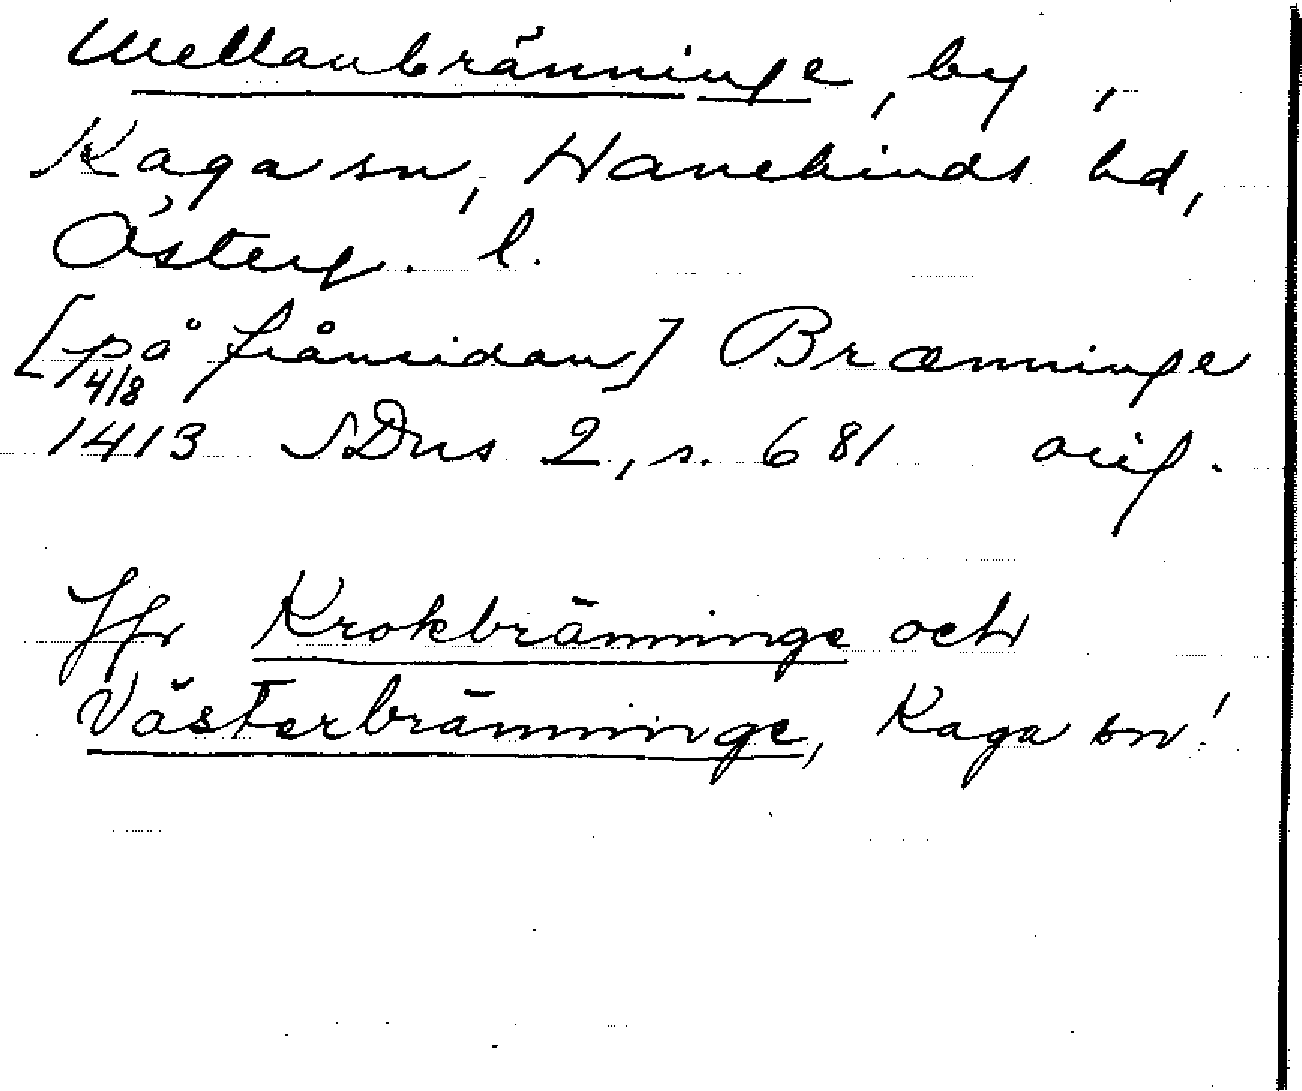 Mellanbränninge, by,
Kaga sn, Hanekinds hd,
Österg. l.
[på frånsidan] Brænninge
4/8
1413 SDns 2, s. 681 orig.
Jfr Krokbränninge och
Västerbränninge, Kaga sn!